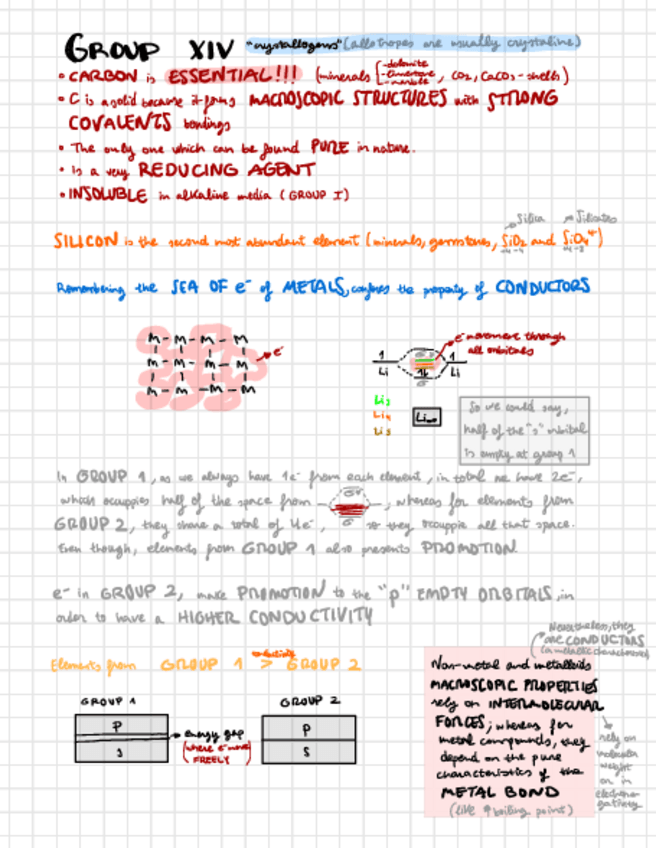 GROUP XIV "crystallogens" (allotropes are usually crystaline)
• CARBON is ESSENTIAL!!! (minerals [-dolomite -limestone -marble, CO2, CaCO3 - shells)
• C is a solid because it forms MACROSCOPIC STRUCTURES with STRONG
COVALENTS bondings
• The only one which can be found PURE in nature.
• Is a very REDUCING AGENT
• INSOLUBLE in alkaline media (GROUP I)
Silica Silicates
SILICON is the second most abundant element (minerals, gemstones, SiO2 and SiO4⁴⁻)
Remembering the SEA OF e⁻ of METALS, confines the property of CONDUCTORS
M - M - M - M
M - M - M - M
M - M - M - M
e⁻
e⁻ movement through
all orbitals
1 1
Li Li
Li3
Li4
Li5
Li∞
So we could say,
half of the "s" orbital
is empty at group 1
In GROUP 1, as we always have 1e⁻ from each element, in total we have 2e⁻,
which occupies half of the space from , whereas for elements from
GROUP 2, they share a total of 4e⁻, so they occupie all that space.
Even though, elements from GROUP 1 also presents PROMOTION
e⁻ in GROUP 2, make PROMOTION to the "p" EMPTY ORBITALS, in
order to have a HIGHER CONDUCTIVITY
Nevertheless, they
are CONDUCTORS
Elements from GROUP 1 > GROUP 2
GROUP 1
P
S
energy gap
(where e⁻ move
FREELY)
GROUP 2
P
S
Non-metal and metalloids
MACROSCOPIC PROPERTIES
rely on INTERMOLECULAR
FORCES; whereas for
metal compounds, they
depend on the pure
characteristics of the
METAL BOND
(like ↑ boiling point)
rely on
molecular
weight
or in
electrone-
gativity